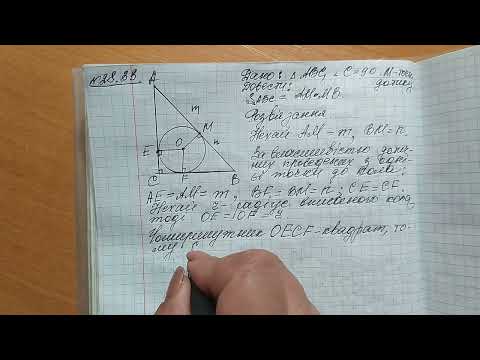 №28.33
A
m
M
O
n
E
C
F
B
Дано: △ABC, ∠C=90 M-точка
дотику
Довести:
S ABC = AM·MB.
Розв'язання
Нехай AM = m, BM = n.
За властивістю доти-
чних проведених з одні-
єї точки до кола:
AE = AM = m, BF = BM = n; CE = CF.
Нехай r - радіус вписаного кола,
тоді OE = OF = r
Чотирикутник OECF - квадрат, то-
му